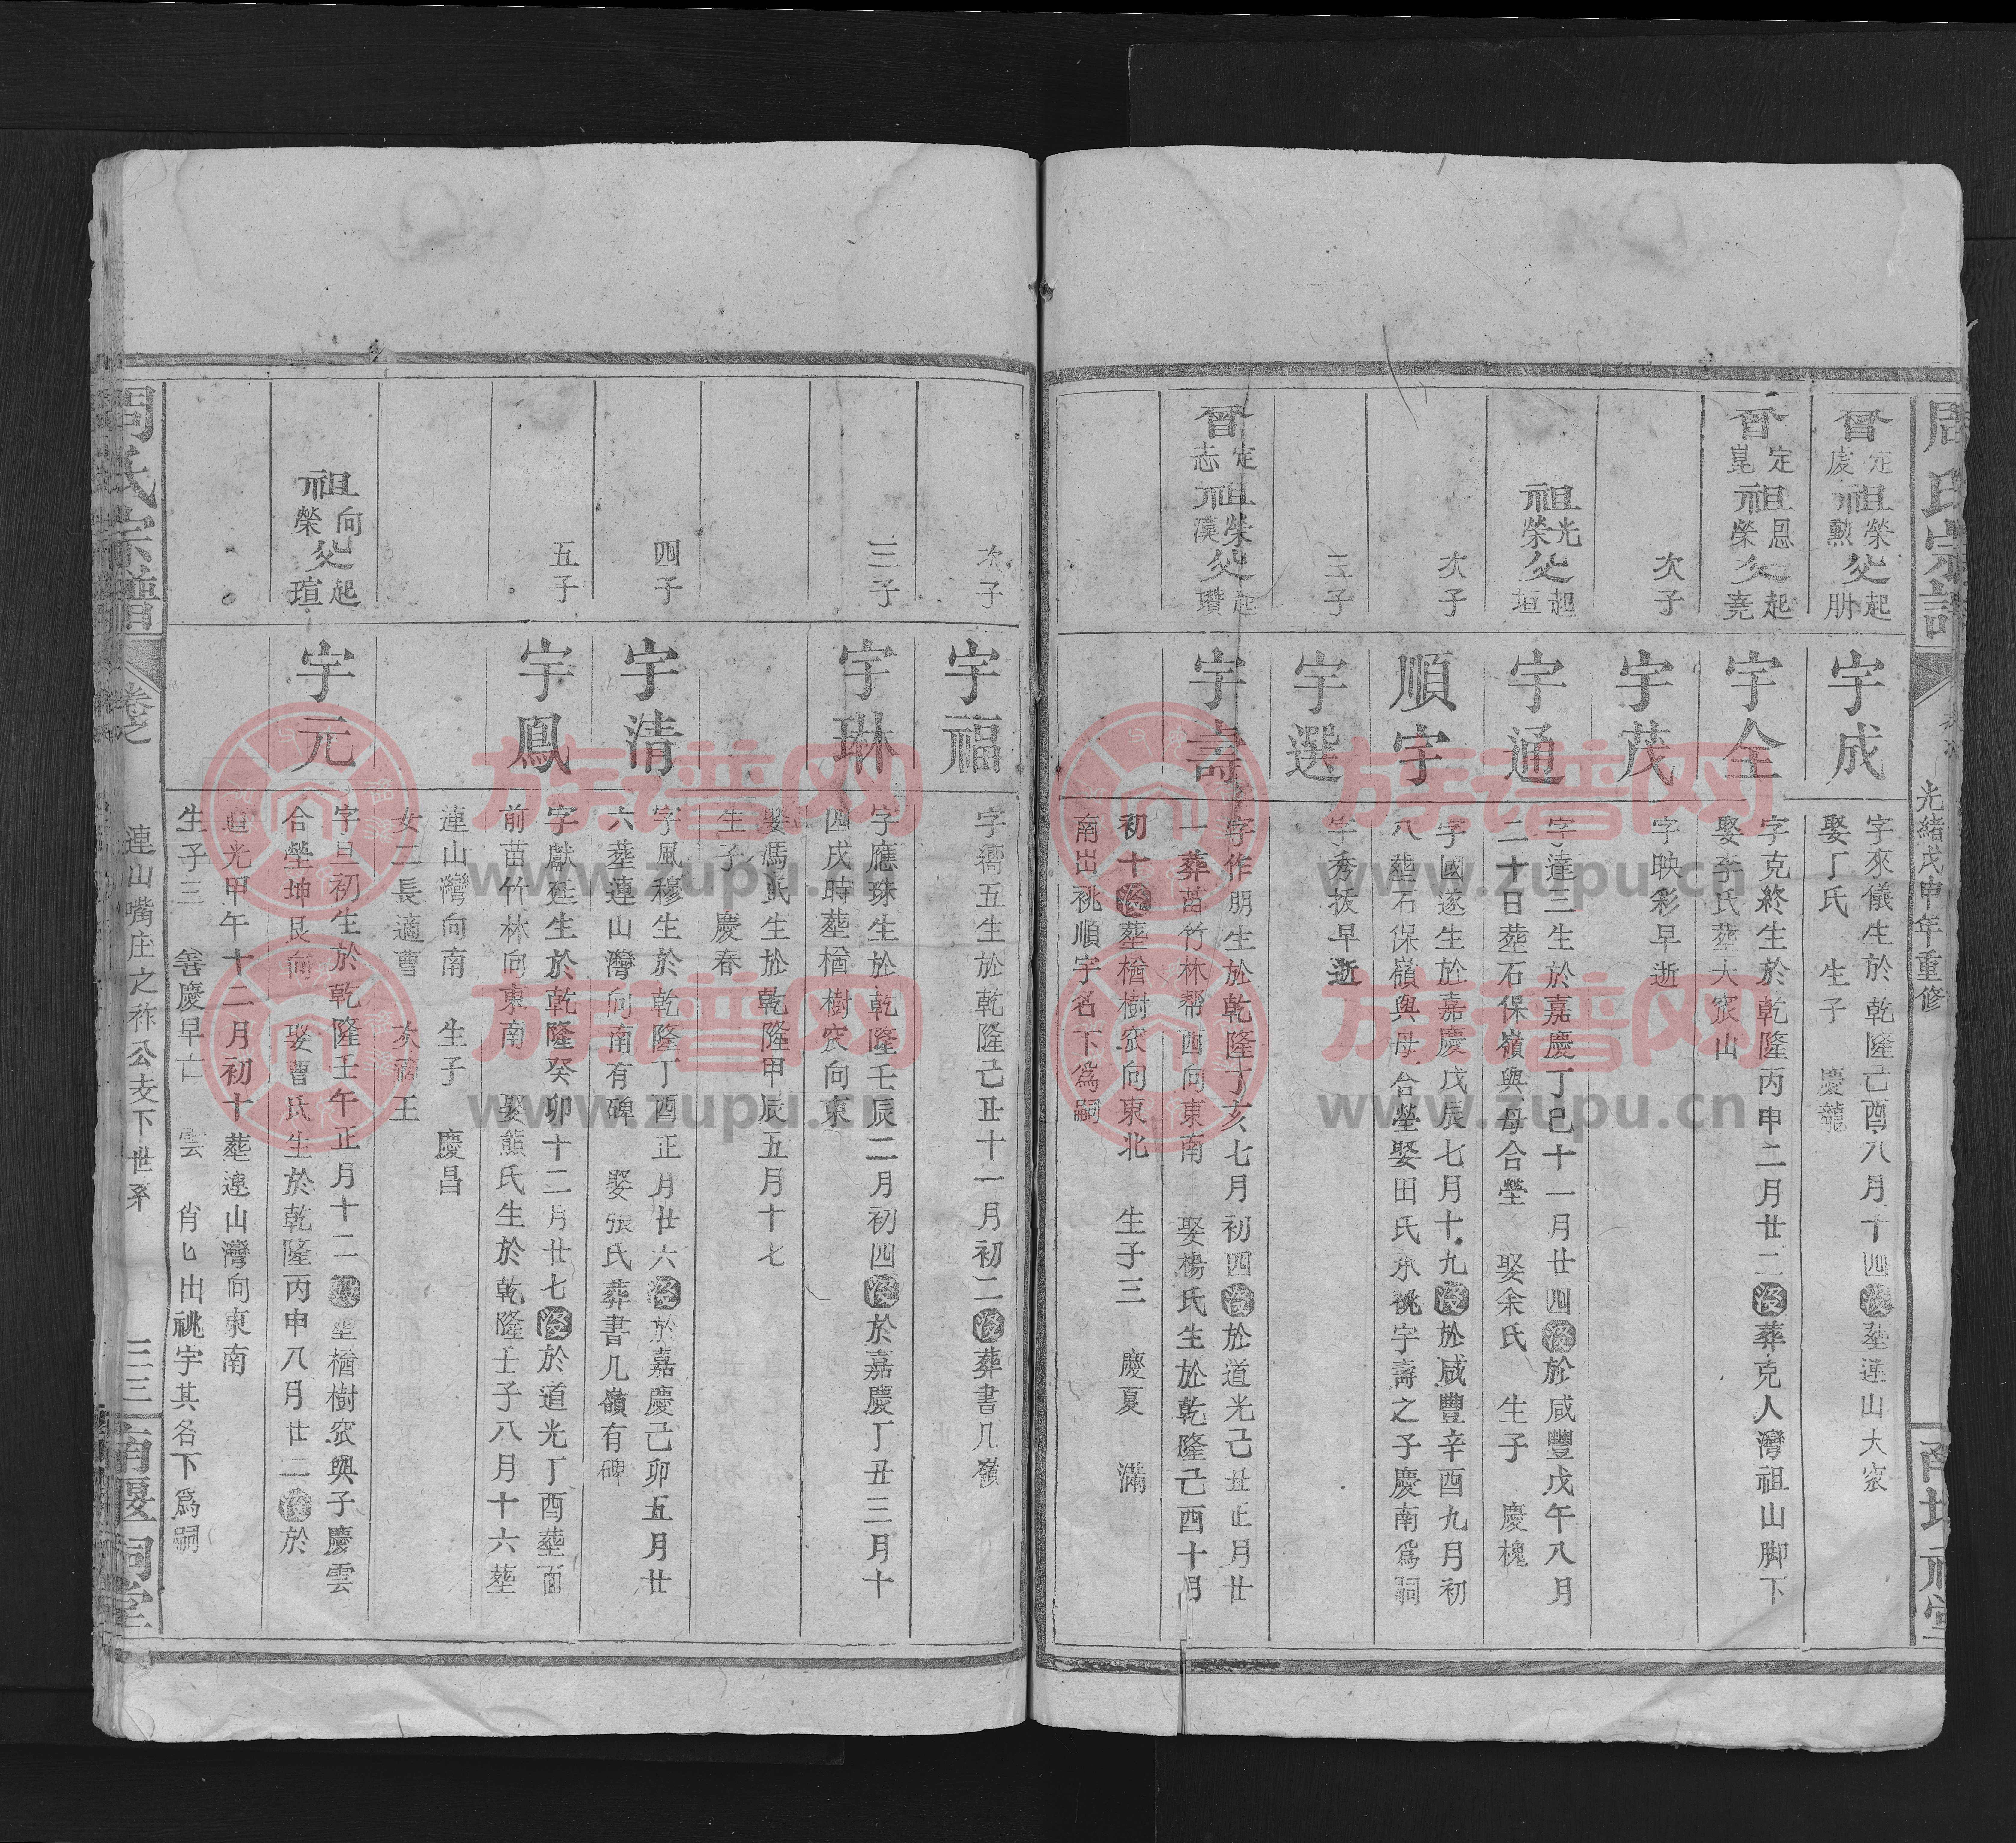 周氏宗譜
光緒戊申年重修
曾定虔祖榮勲父起朋
宇成
字來儀生於乾隆己酉八月十四歿塟連山大窊
娶丁氏 生子 慶龍
曾定崑祖榮恩父起堯
宇全
字克終生於乾隆丙申二月廿二歿葬克人灣祖山脚下
娶李氏葬大窊山
次子
宇茂
字映彩早逝
祖榮光父起垣
宇通
字達三生於嘉慶丁巳十一月廿四歿於咸豐戊午八月
二十日塟石保嶺與母合塋 娶余氏 生子 慶槐
次子
順宇
字國遂生於嘉慶戊辰七月十九歿於咸豐辛酉九月初
八塟石保嶺與母合塋娶田氏承祧宇壽之子慶南爲嗣
三子
宇選
字秀抜早逝
曾定志祖榮漠父起瓚
宇壽
字作朋生於乾隆丁亥七月初四歿於道光己丑正月廿
一葬苗竹林帮西向東南 娶楊氏生於乾隆己酉十月
初十歿塟楢樹窊向東北 生子三 慶夏 滿
南出祧順宇名下爲嗣
次子
宇福
字衢五生於乾隆己丑十一月初二歿葬書几嶺
三子
宇琳
字應琛生於乾隆壬辰二月初四歿於嘉慶丁丑三月十
四戌時塟楢樹窊向東
娶馮氏生於乾隆甲辰五月十七
生子 慶春
四子
宇清
字風穆生於乾隆丁酉正月廿六歿於嘉慶己卯五月廿
六葬連山灣向南有碑 娶張氏葬書几嶺有碑
五子
宇鳳
字獻廷生於乾隆癸卯十二月廿七歿於道光丁酉塟面
前苗竹林向東南 娶熊氏生於乾隆壬子八月十六塟
連山灣向南 生子 慶昌
女二長適曹 次適王
祖向榮父起瑄
宇元
字旦初生於乾隆壬午正月十二歿塋楢樹窊與子慶雲
合塋坤艮向 娶曹氏生於乾隆丙申八月廿二歿於
道光甲午十二月初十塟連山灣向東南
生子三 善慶早亡 雲 肖七出祧宇其名下爲嗣
周氏宗譜
卷之
連山嘴庄之祚公支下世系
三三
南堰祠堂
族谱网
www.zupu.cn
族谱网
www.zupu.cn
族谱网
www.zupu.cn
族谱网
www.zupu.cn